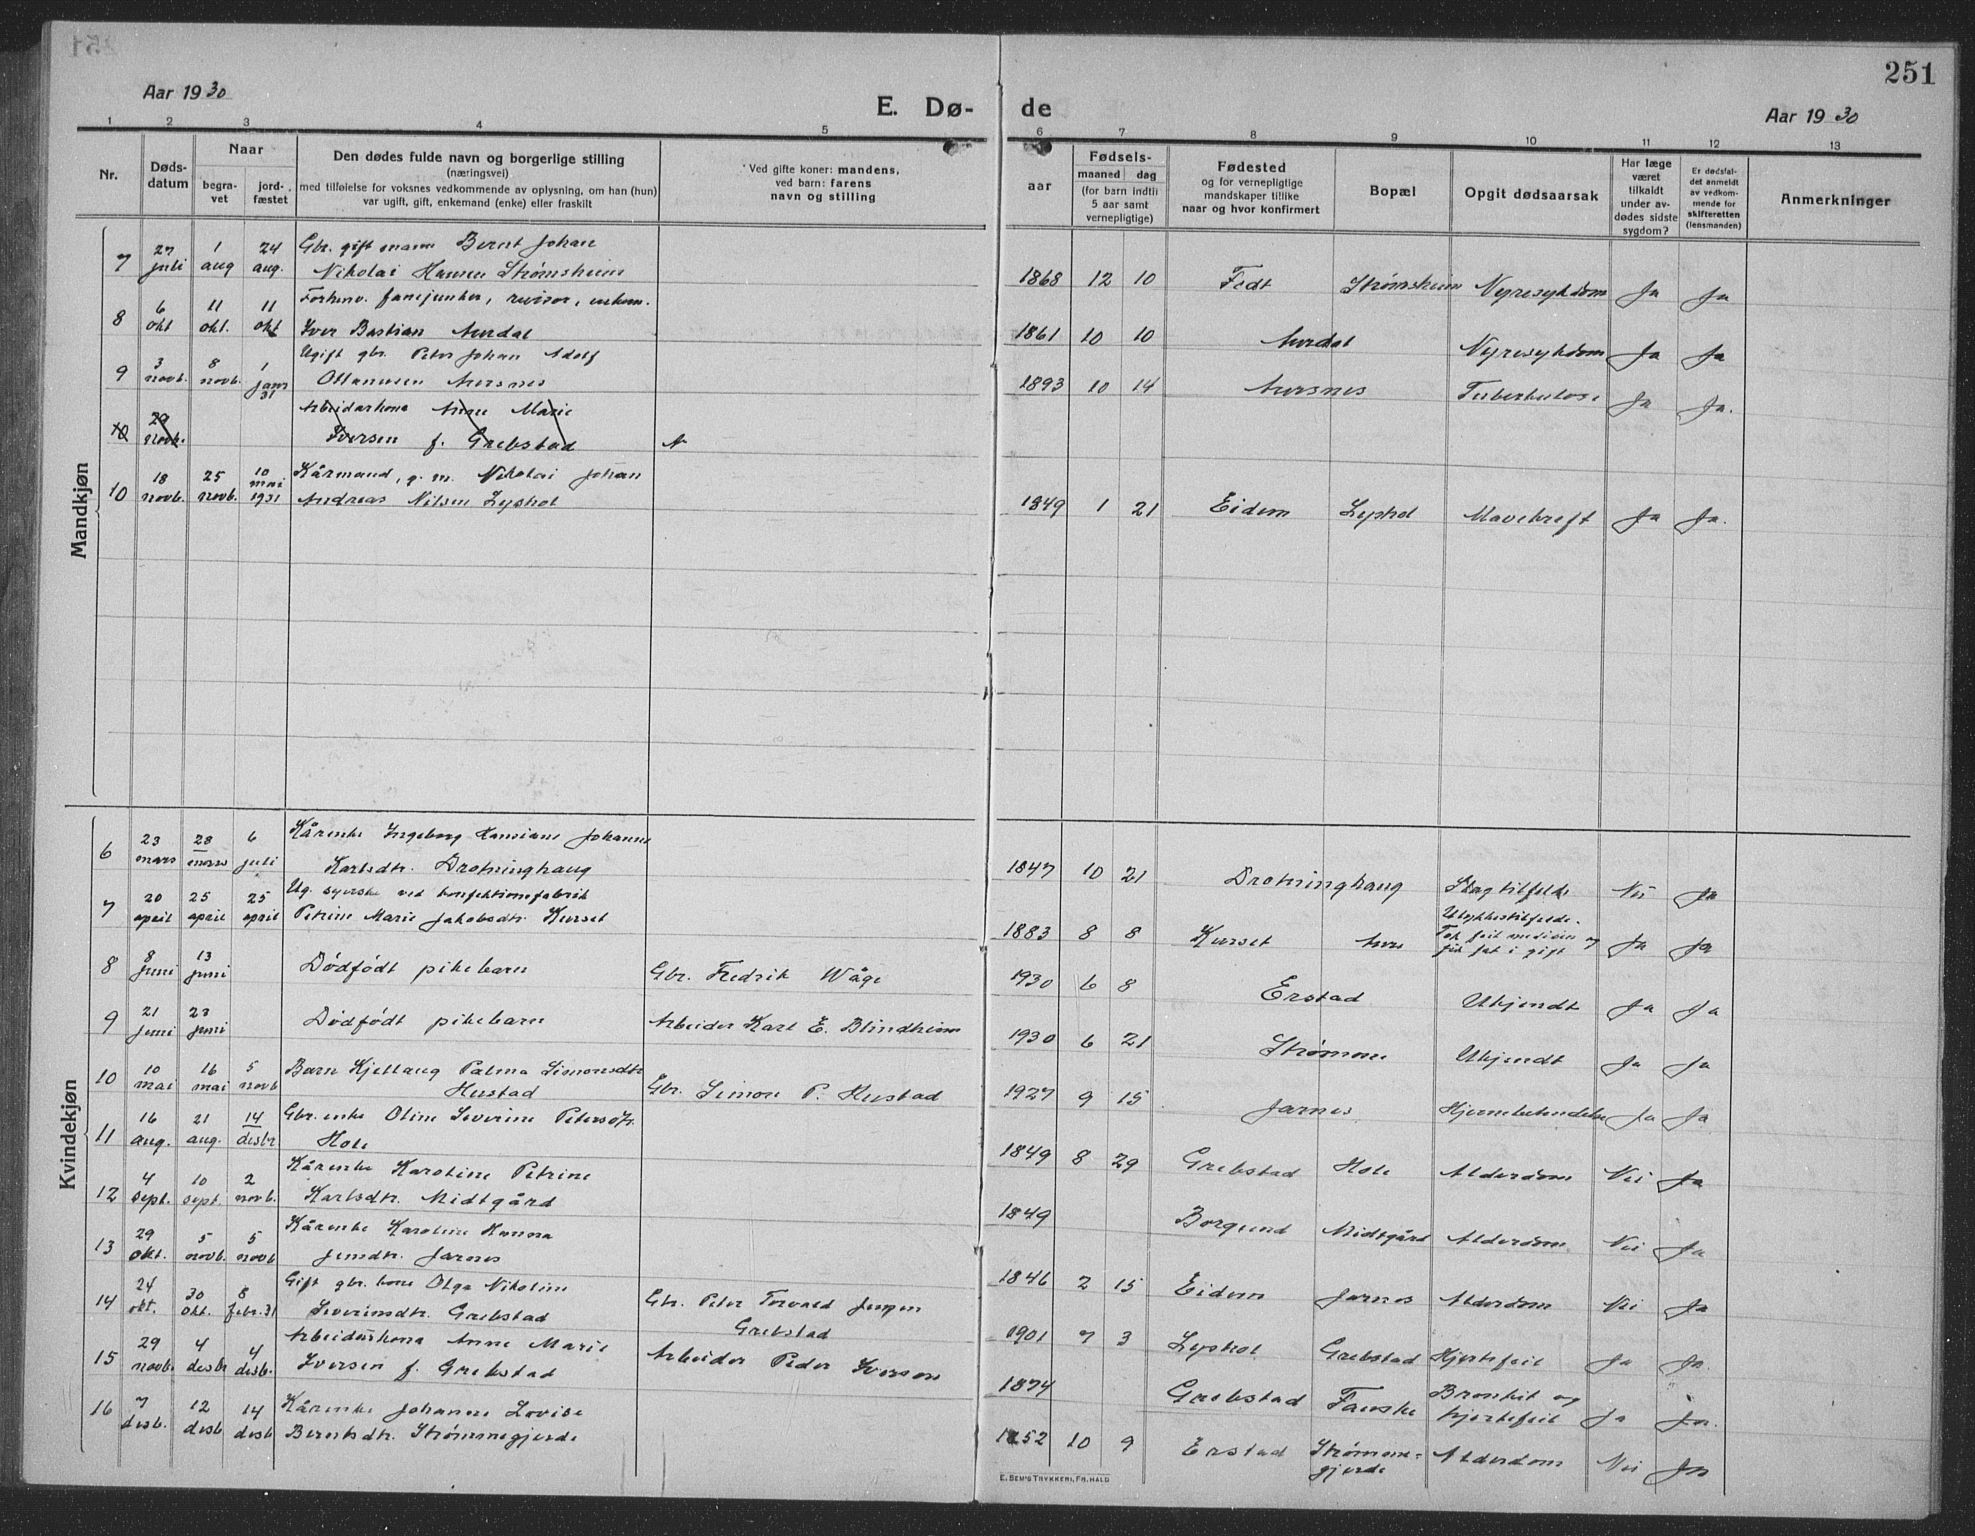 251
Aar 1930
E. Dø-
de
Aar 1930
1 2 3 4 5 6 7 8 9 10 11 12 13
Nr.
Døds-
datum
Naar
begra-
vet
jord-
fæstet
Den dødes fulde navn og borgerlige stilling
(næringsvei)
med tilføielse for voksnes vedkommende av oplysning, om han (hun)
var ugift, gift, enkemand (enke) eller fraskilt
Ved gifte koner: mandens,
ved barn: farens
navn og stilling
aar
Fødsels-
maaned dag
(for barn indtil
5 aar samt
vernepligtige)
Fødested
og for vernepligtige
mandskaper tillike
naar og hvor konfirmert
Bopæl
Opgit dødsaarsak
Har læge
været
tilkaldt
under av-
dødes sidste
sygdom?
Er dødsfal-
det anmeldt
av vedkom-
mende for
skifteretten
(lensmanden)
Anmerkninger
Mandkjøn
7 27 juli 1 aug 24 aug. Gbr. gift mann Bernt Johan
Nikolai Hansen Strømsheim 1868 12 10 Fedt Strømsheim Nyresykdom Ja Ja
8 6 okt 11 okt. 11 okt Forhenv. fanejunker, revisor, enkem.
Iver Bastian Aurdal 1861 10 10 Aurdal Nyresykdom Ja Ja
9 3 novb. 8 novb. 1 janr 31 Ugift gbr. Peter Johan Adolf
Ottanusen Aursnes 1893 10 14 Aursnes Tuberkulose Ja Ja.
10 29 novb. Arbeidarkona Anne Marie
Iversen f. Grebstad
10 18 novb. 25 novb. 10 mai 1931 Kårmand, g. m. Nikolai Johan
Andreas Nilsen Lyshol 1849 1 21 Eidem Lyshol Mavekreft Ja Ja.
Kvindekjøn
6 23 mars 28 mars 6 juli Kårenke Ingeborg Hansiane Johanne
Karlsdtr. Drotninghaug 1847 10 21 Drotninghaug Slagtilfelde Nei Ja
7 20 april 25 april 25 april Ug. syerske ved konfektionsfabrik
Petrine Marie Jakobsdtr. Kurset 1883 8 8 Kurset Aure Ulykkestilfelde.
Tok feil medisin og
fik fat i gift Ja Ja
8 8 juni 13 juni Dødfødt pikebarn Gbr. Fredrik Wåge 1930 6 8 Erstad Ukjendt Ja Ja
9 21 juni 23 juni Dødfødt pikebarn Arbeider Karl E. Blindheim 1930 6 21 Strømme Ukjendt Ja Ja
10 10 mai 16 mai 5 novb Barn Kjellaug Palma Simonsdtr
Hustad Gbr. Simon P. Hustad 1927 9 15 Jarnes Hjernebetendelse Ja Ja
11 16 aug. 21 aug. 14 desbr Gbr. enke Oline Severine Petersdtr.
Hole 1849 8 29 Grebstad Hole Alderdom Nei Ja
12 4 sept. 10 sept. 2 novb. Kårenke Karoline Petrine
Karlsdtr. Midtgård 1849 Borgund Midtgård Alderdom Nei Ja
13 29 okt. 5 novb. 5 novb Kårenke Karoline Hanna
Jensdtr. Jarnes 1846 2 15 Eidem Jarnes Alderdom Nei Ja
14 24 okt. 30 okt. 8 febr. 31 Gift gbr. kone Olga Nikoline
Severinsdtr. Grebstad Gbr. Peter Torvald Jørgen
Grebstad 1901 7 3 Lyshol Grebstad Hjertefeil Ja Ja.
15 29 novb. 4 desbr 4 desb. Arbeiderkona Anne Marie
Iversen f. Grebstad Arbeider Peder Iverson 1874 Grebstad Fauske Bronkit og
hjertefeil Ja Ja.
16 7 desb. 12 desb 14 desb Kårenke Johanne Lovise
Berntsdtr. Strømmegjerde 1852 10 9 Erstad Strømme-
gjerde Alderdom Nei Ja
E. SEM'S TRYKKERI, FR.HALD